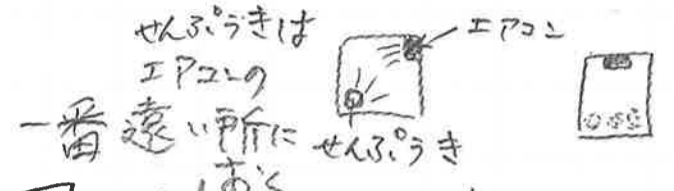 せんぷうきは
エアコンの
一番遠い所に
おく
エアコン
せんぷうき